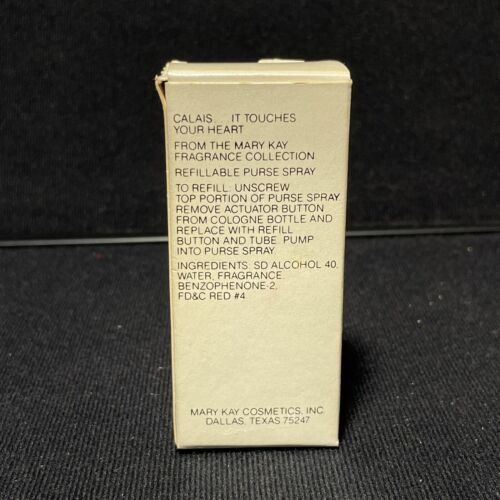 CALAIS... IT TOUCHES
YOUR HEART
FROM THE MARY KAY
FRAGRANCE COLLECTION
REFILLABLE PURSE SPRAY
TO REFILL: UNSCREW
TOP PORTION OF PURSE SPRAY.
REMOVE ACTUATOR BUTTON
FROM COLOGNE BOTTLE AND
REPLACE WITH REFILL
BUTTON AND TUBE. PUMP
INTO PURSE SPRAY.
INGREDIENTS: SD ALCOHOL 40,
WATER, FRAGRANCE,
BENZOPHENONE-2,
FD&C RED #4
MARY KAY COSMETICS, INC.
DALLAS, TEXAS 75247